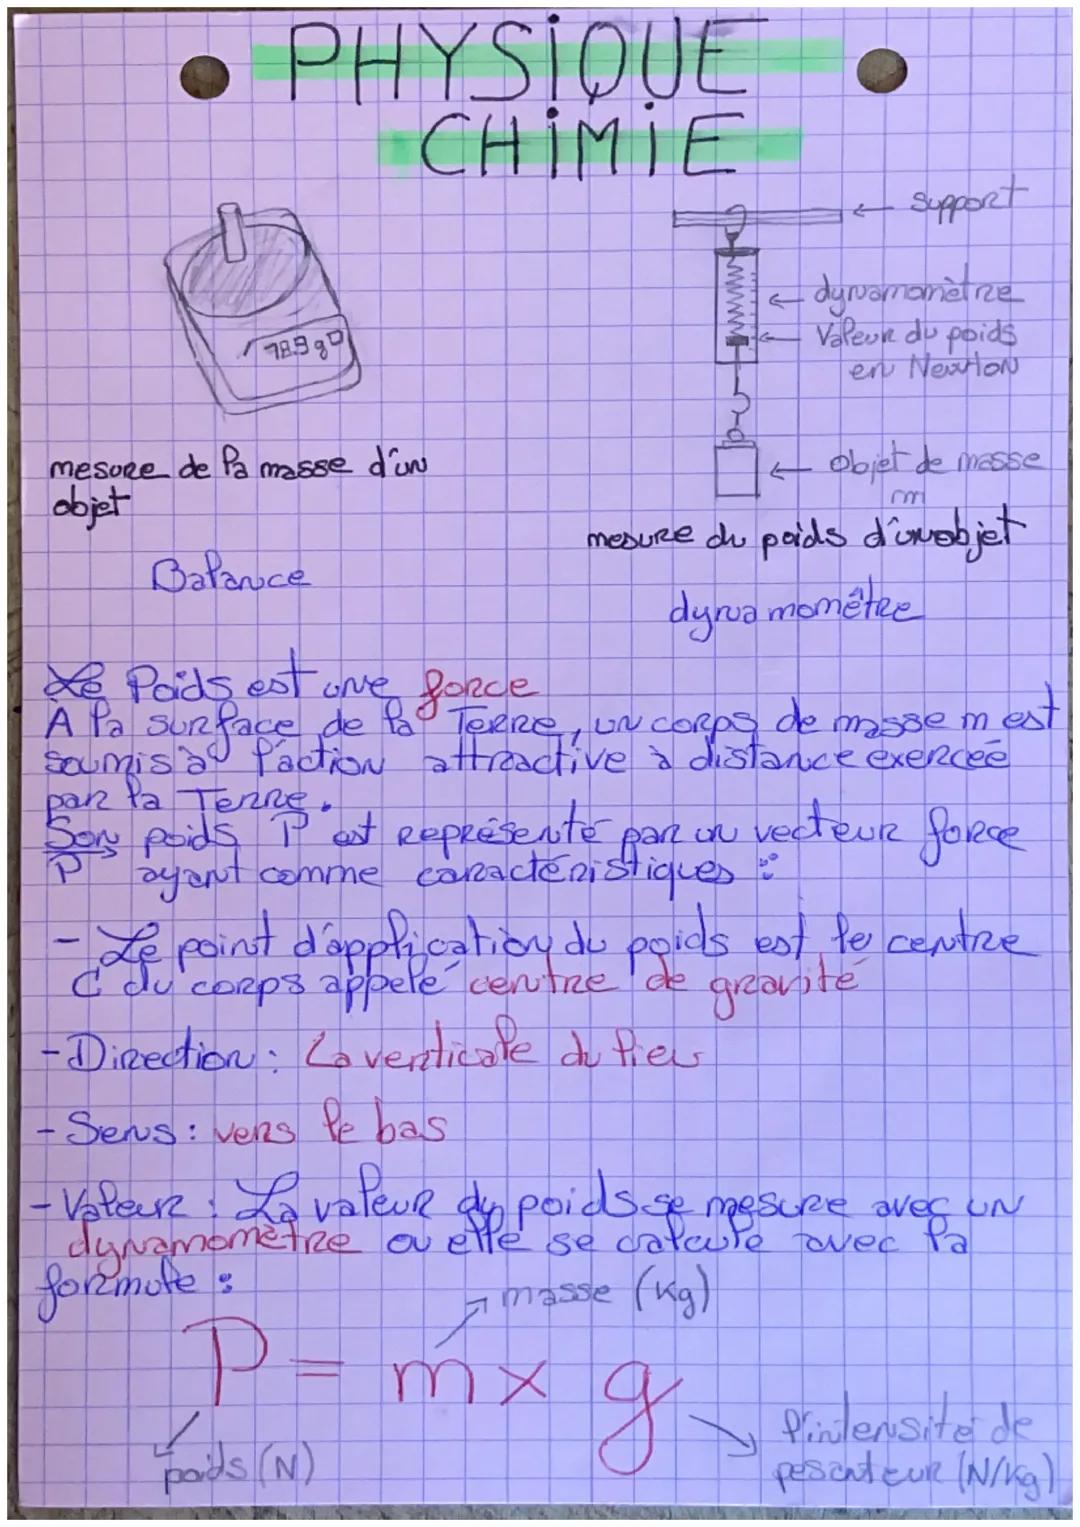 PHYSIQUE
CHIMIE
support
dynamomètre
Valeur du poids
en Newton
78.9 g
mesure de la masse d'un
objet
objet de masse
m
mesure du poids d'un objet
Balance
dynamomêtre
Le Poids est une force
À la surface de la Terre, un corps de masse m est
soumis à l'action attractive à distance exercée
par la Terre.
Son poids P est représenté par un vecteur force
P ayant comme caractéristiques :
- Le point d'application du poids est le centre
C du corps appelé centre de gravité
- Direction : La verticale du lieu
- Sens : vers le bas
- Valeur : La valeur du poids se mesure avec un
dynamomètre ou elle se calcule avec la
formule :
masse (Kg)
P = m x g
poids (N)
l'intensité de
pesanteur (N/Kg)